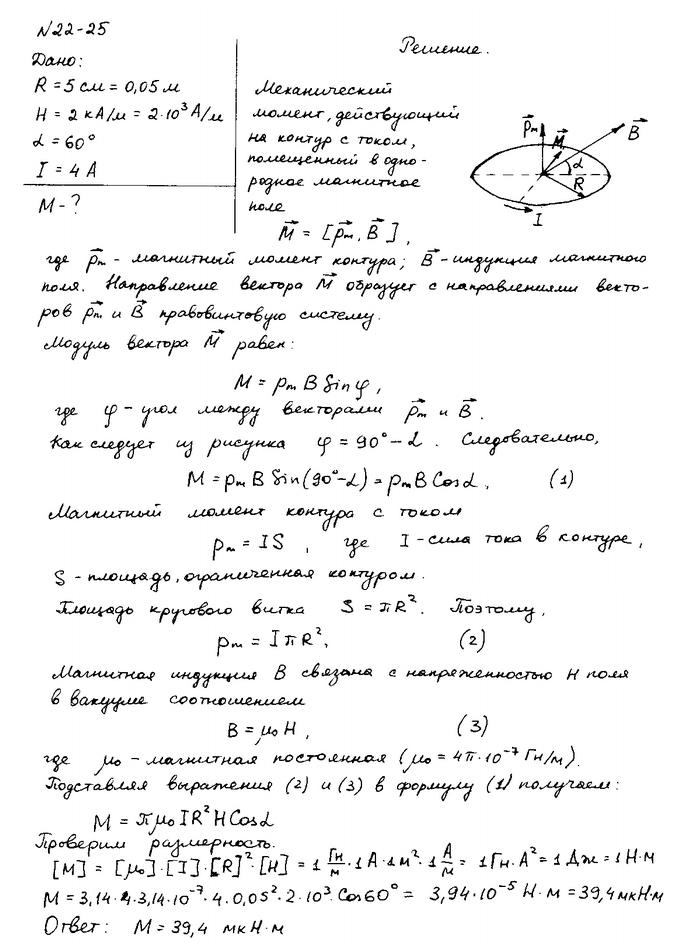 N22-25
Дано:
Решение.
R = 5 см = 0,05 м
H = 2 кА/м = 2·10³ А/м
α = 60°
I = 4 А
M - ?
Механический
момент, действующий
на контур с током,
помещенный в одно-
родное магнитное
поле
p⃗m M⃗ B⃗
α
R
I
M⃗ = [p⃗m, B⃗],
где p⃗m - магнитный момент контура; B⃗ - индукция магнитного
поля. Направление вектора M⃗ образует с направлениями векто-
ров p⃗m и B⃗ правовинтовую систему.
Модуль вектора M⃗ равен:
M = pm B Sinφ,
где φ - угол между векторами p⃗m и B⃗.
Как следует из рисунка φ = 90° - α. Следовательно,
M = pm B Sin(90° - α) = pm B Cosα, (1)
Магнитный момент контура с током
pm = IS, где I - сила тока в контуре,
S - площадь, ограниченная контуром.
Площадь кругового витка S = πR². Поэтому,
pm = IπR², (2)
Магнитная индукция B связана с напряженностью H поля
в вакууме соотношением
B = μ₀H, (3)
где μ₀ - магнитная постоянная (μ₀ = 4π·10⁻⁷ Гн/м).
Подставляя выражения (2) и (3) в формулу (1) получаем:
M = πμ₀IR²HCosα
Проверим размерность.
[M] = [μ₀]·[I]·[R]²·[H] = 1 Гн/м · 1А · 1м² · 1 А/м = 1Гн·А² = 1Дж = 1Н·м
M = 3,14·4·3,14·10⁻⁷·4·0,05²·2·10³·Cos60° = 3,94·10⁻⁵ Н·м = 39,4мкН·м
Ответ: M = 39,4 мкН·м